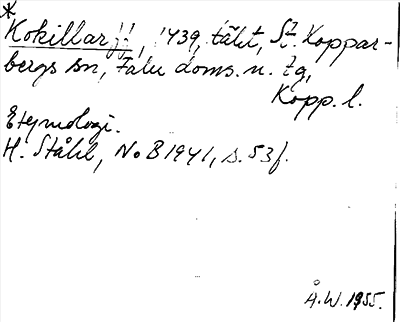 *
Kokillar, 1439, täkt, St. Koppar-
bergs sn, Falu doms. u. tg,
Kopp. l.
Etymologi.
H. Ståhl, NoB 1941, s. 53f.
Å.W. 1955.